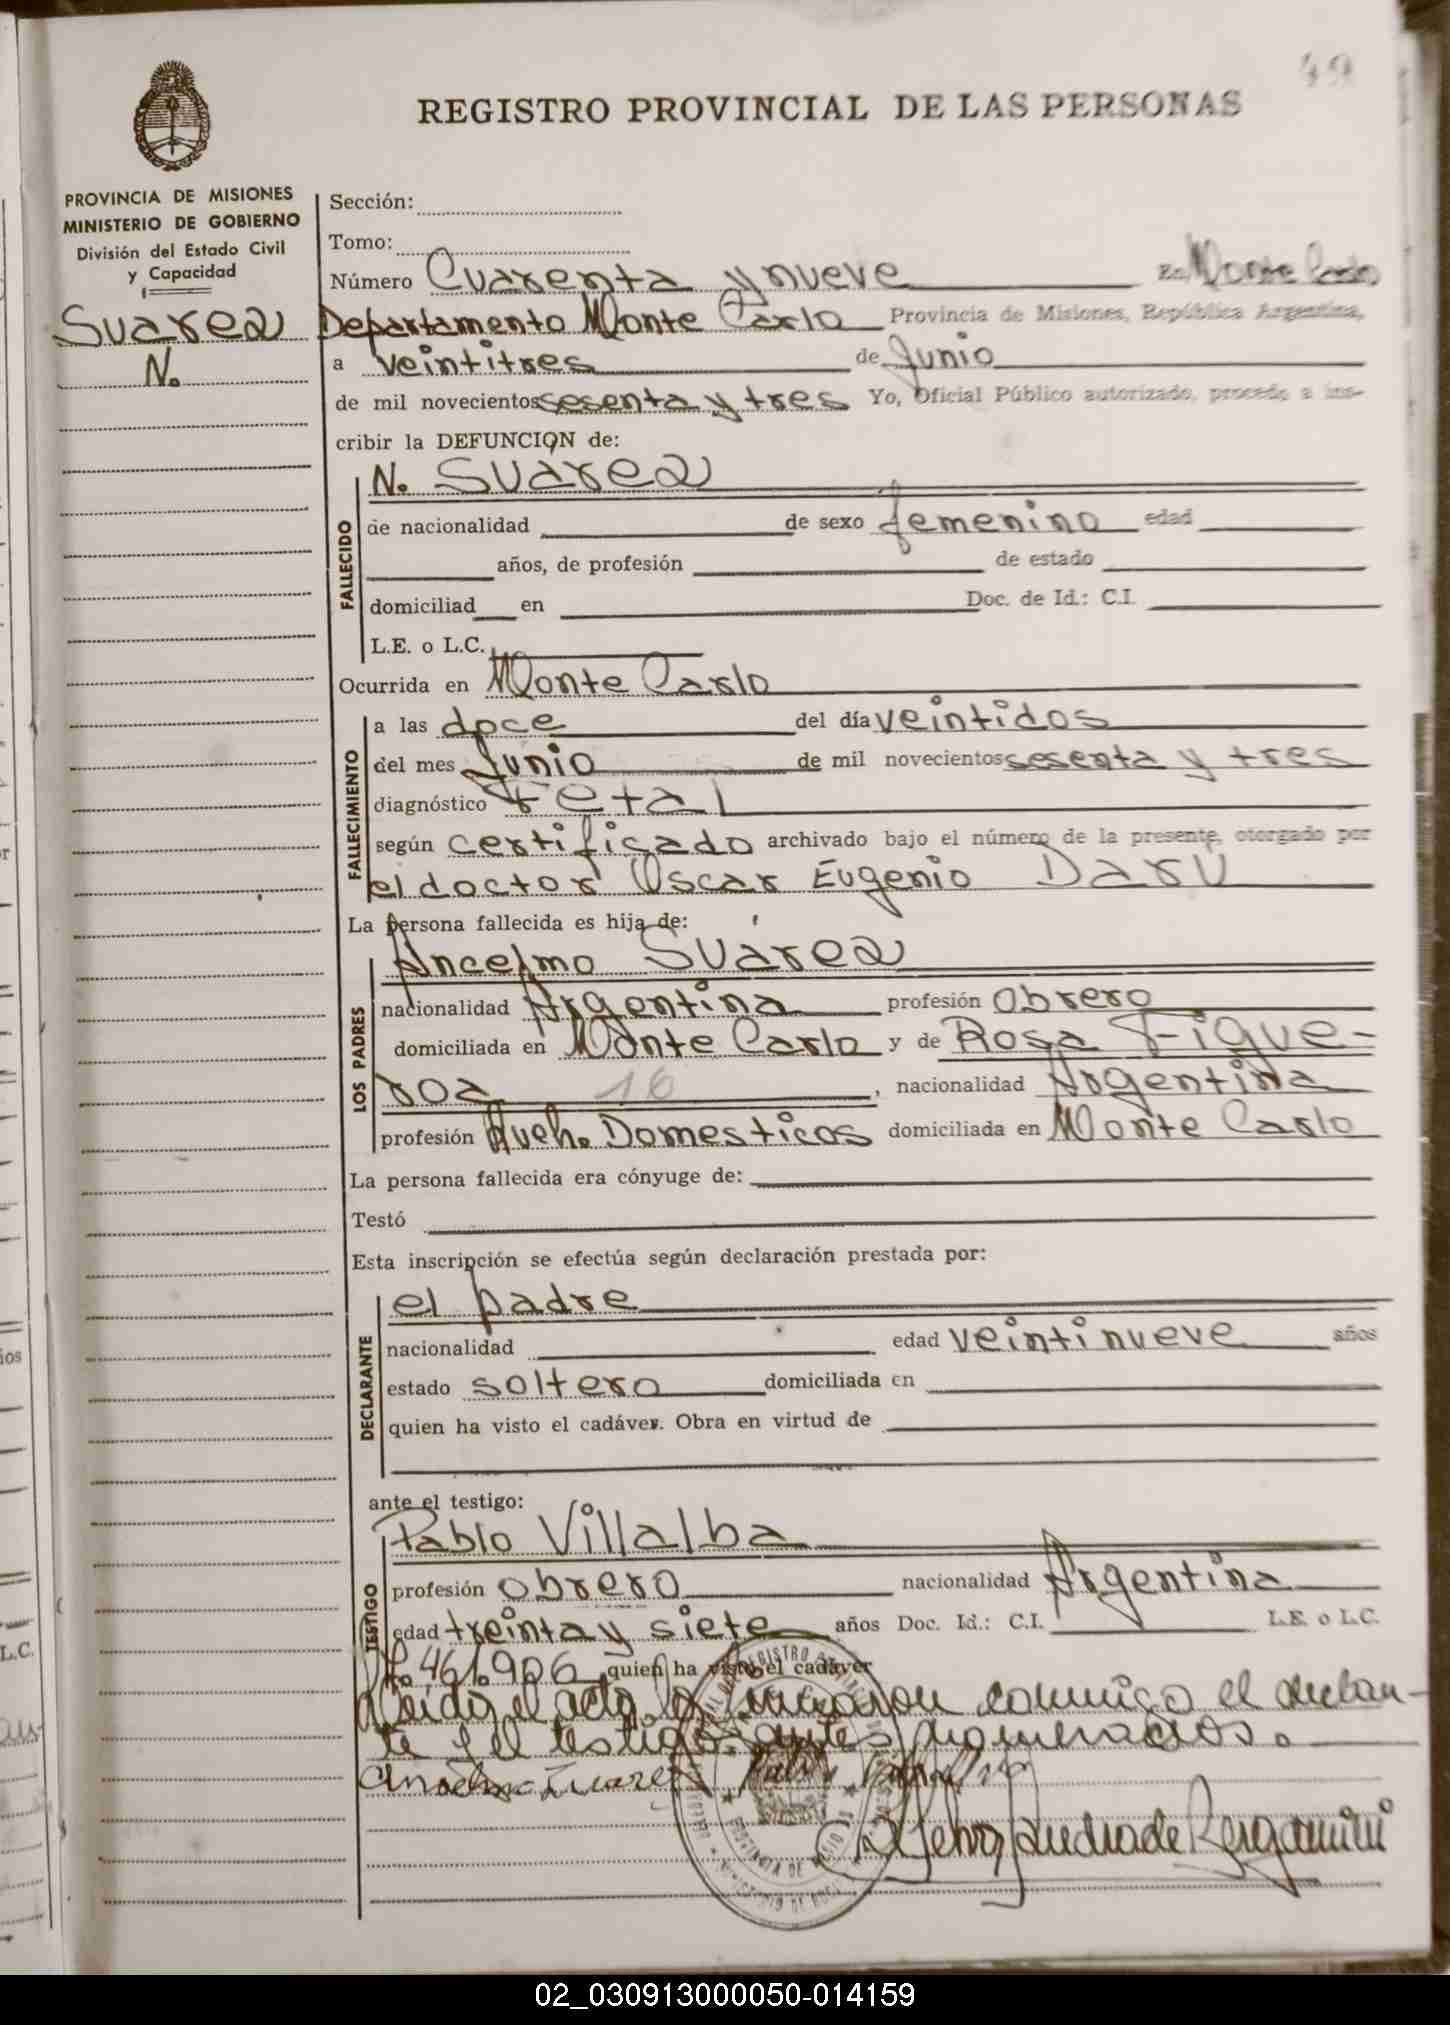 49
REGISTRO PROVINCIAL DE LAS PERSONAS
PROVINCIA DE MISIONES
MINISTERIO DE GOBIERNO
División del Estado Civil
y Capacidad
Suarez
N.
Sección:
Tomo:
Número Cuarenta y nueve En Monte Carlo
Departamento Monte Carlo Provincia de Misiones, República Argentina,
a veintitres de Junio
de mil novecientos sesenta y tres Yo, Oficial Público autorizado, procedo a ins-
cribir la DEFUNCION de:
FALLECIDO
N. Suarez
de nacionalidad de sexo femenino edad
años, de profesión de estado
domiciliad en Doc. de Id.: C.I.
L.E. o L.C.
Ocurrida en Monte Carlo
FALLECIMIENTO
a las doce del día veintidos
del mes Junio de mil novecientos sesenta y tres
diagnóstico Fetal
según certificado archivado bajo el número de la presente, otorgado por
el doctor Oscar Eugenio Darú
La persona fallecida es hija de:
LOS PADRES
Ancelmo Suárez
nacionalidad Argentina profesión obrero
domiciliada en Monte Carlo y de Rosa Figue-
roa 16, nacionalidad Argentina
profesión Queh. Domesticos domiciliada en Monte Carlo
La persona fallecida era cónyuge de:
Testó
Esta inscripción se efectúa según declaración prestada por:
DECLARANTE
el padre
nacionalidad edad veintinueve años
estado soltero domiciliada en
quien ha visto el cadáver. Obra en virtud de
ante el testigo:
TESTIGO
Pablo Villalba
profesión obrero nacionalidad Argentina
edad treinta y siete años Doc. Id.: C.I. L.E. o L.C.
7.461.926 quien ha visto el cadáver
Leido el acta la firmaron conmigo el declaran-
te y el testigo antes nombrados.
Suarez
Andrade Bergamini
L.C.
02_030913000050-014159